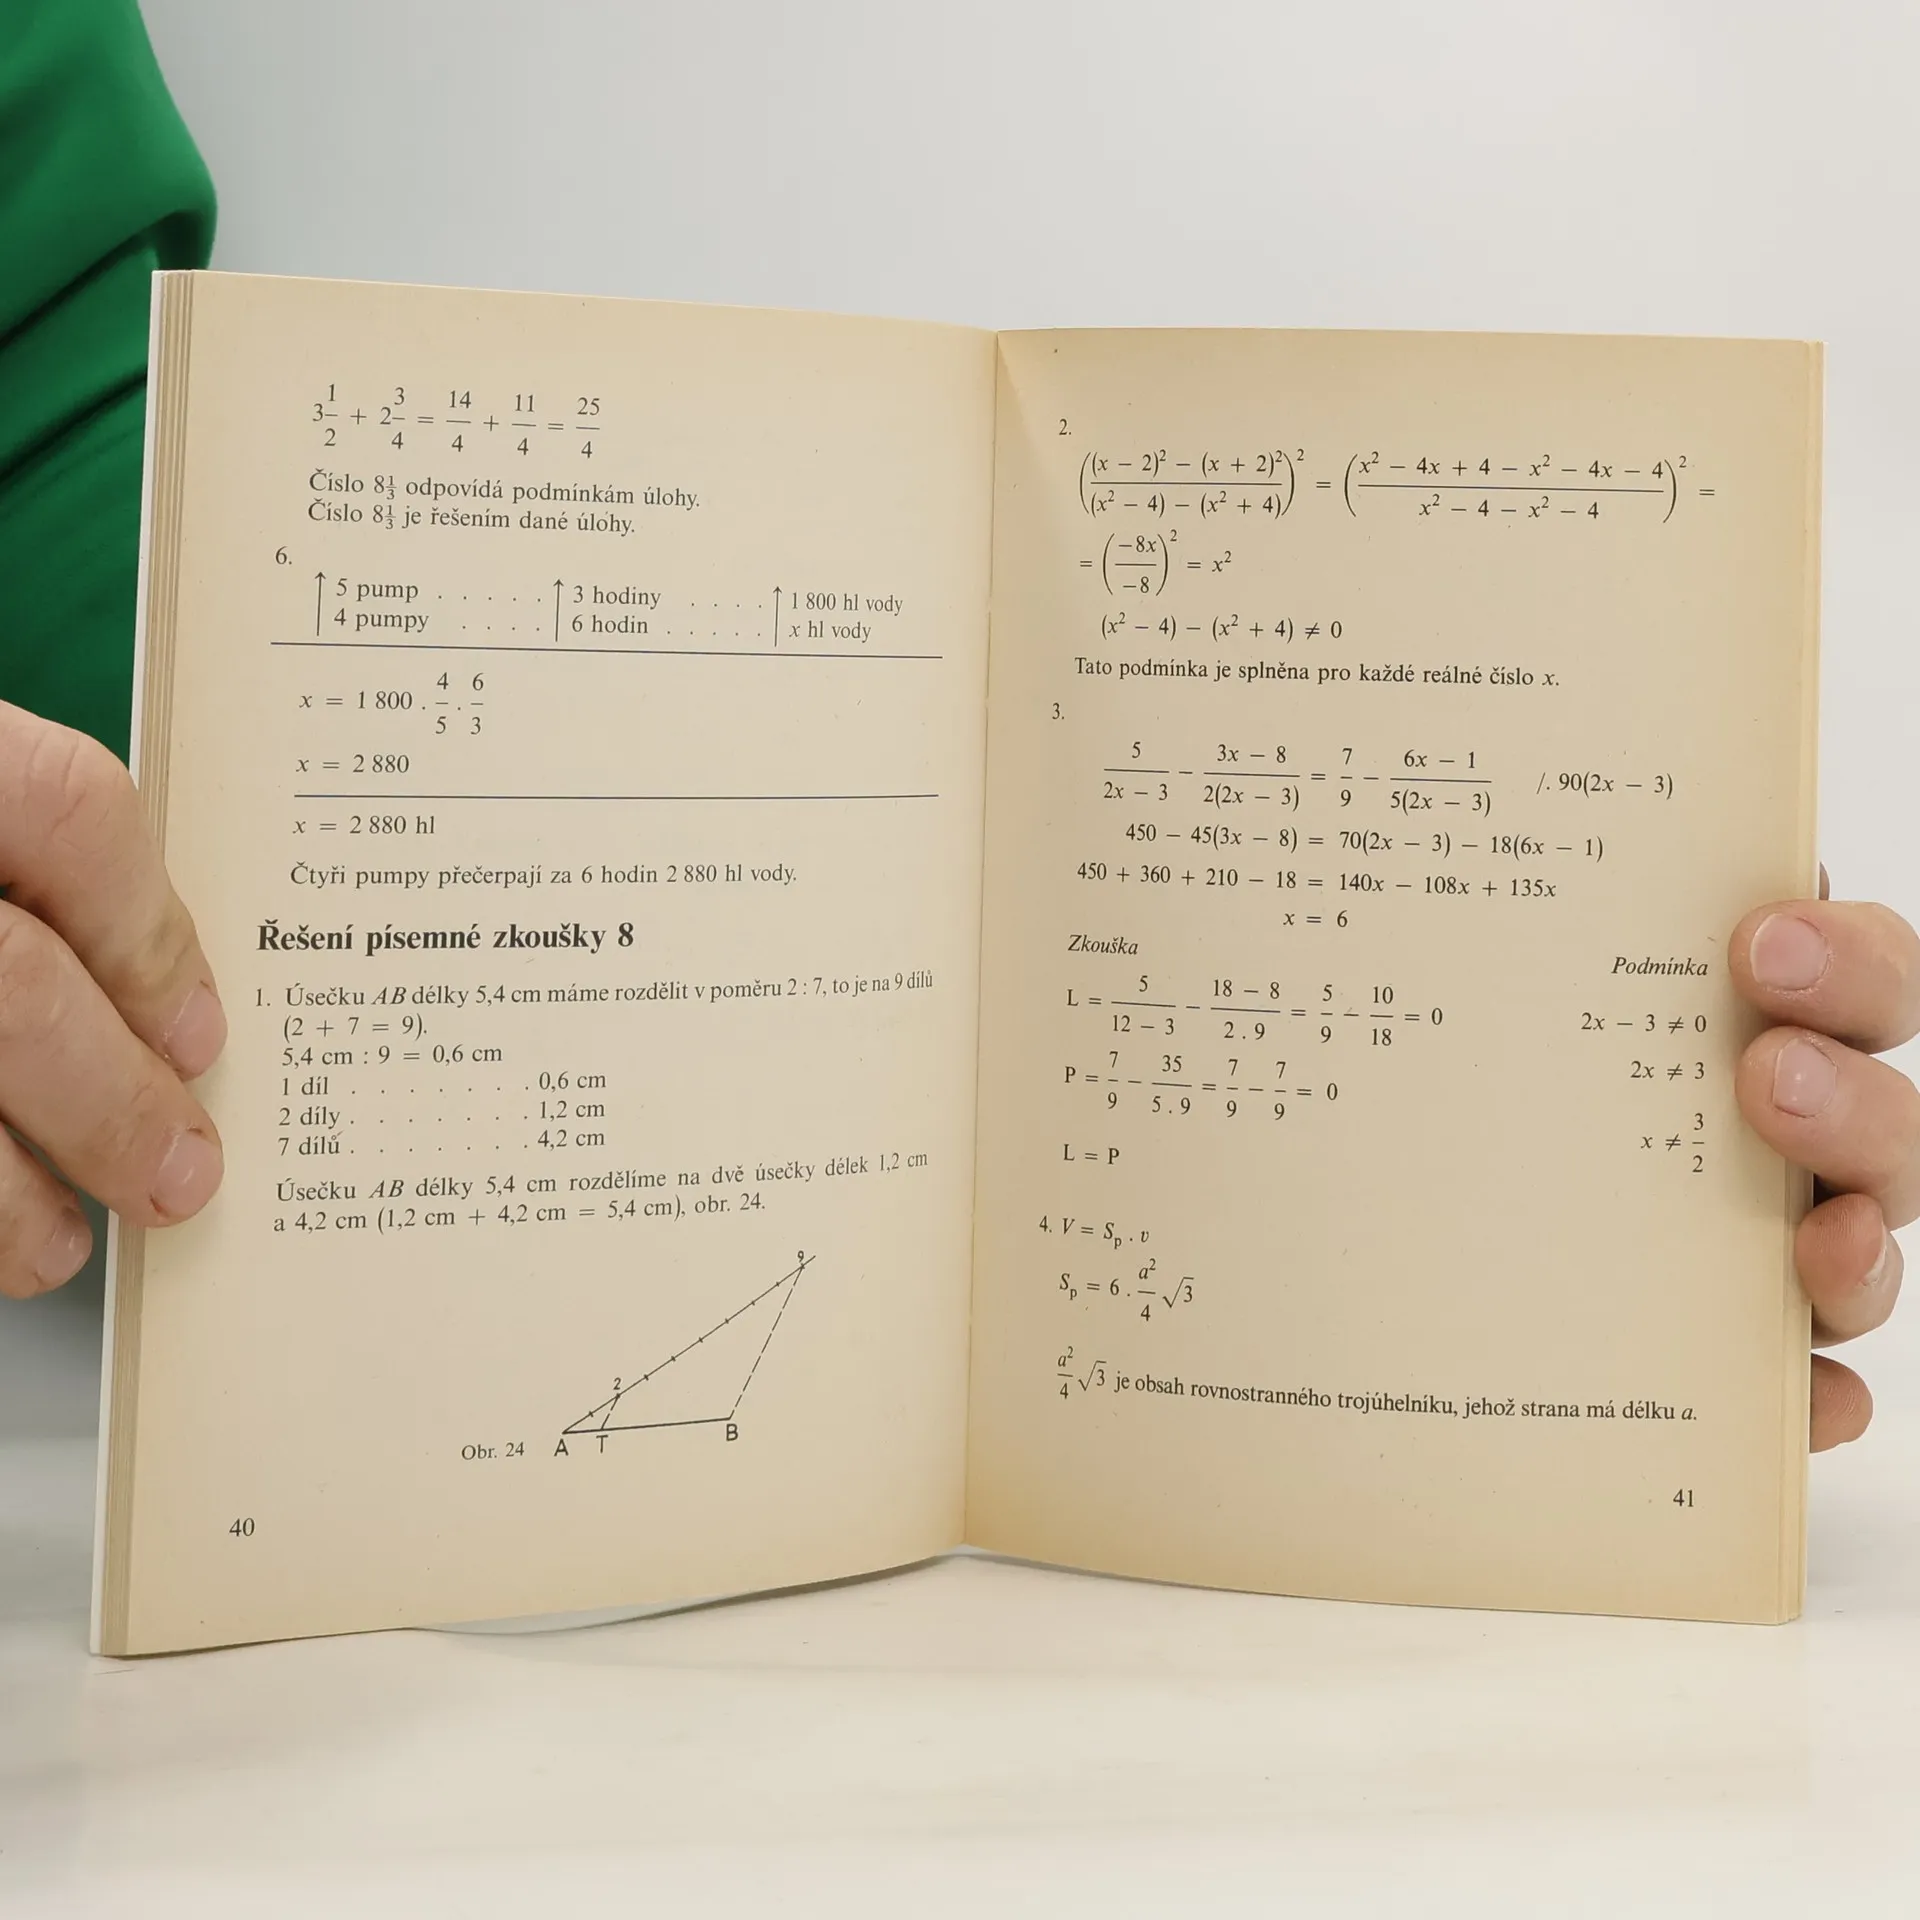 3 1/2 + 2 3/4 = 14/4 + 11/4 = 25/4
Číslo 8⅓ odpovídá podmínkám úlohy.
Číslo 8⅓ je řešením dané úlohy.
6.
↑ 5 pump . . . . . ↑ 3 hodiny . . . . ↑ 1 800 hl vody
4 pumpy . . . . 6 hodin . . . . . x hl vody
x = 1 800 . 4/5 . 6/3
x = 2 880
x = 2 880 hl
Čtyři pumpy přečerpají za 6 hodin 2 880 hl vody.
Řešení písemné zkoušky 8
1. Úsečku AB délky 5,4 cm máme rozdělit v poměru 2 : 7, to je na 9 dílů
(2 + 7 = 9).
5,4 cm : 9 = 0,6 cm
1 díl . . . . . . . 0,6 cm
2 díly . . . . . . . 1,2 cm
7 dílů . . . . . . . 4,2 cm
Úsečku AB délky 5,4 cm rozdělíme na dvě úsečky délek 1,2 cm
a 4,2 cm (1,2 cm + 4,2 cm = 5,4 cm), obr. 24.
9
2
Obr. 24 A T B
40
2.
(((x − 2)² − (x + 2)²)/((x² − 4) − (x² + 4)))² = ((x² − 4x + 4 − x² − 4x − 4)/(x² − 4 − x² − 4))² =
= (−8x/−8)² = x²
(x² − 4) − (x² + 4) ≠ 0
Tato podmínka je splněna pro každé reálné číslo x.
3.
5/(2x − 3) − (3x − 8)/(2(2x − 3)) = 7/9 − (6x − 1)/(5(2x − 3)) /. 90(2x − 3)
450 − 45(3x − 8) = 70(2x − 3) − 18(6x − 1)
450 + 360 + 210 − 18 = 140x − 108x + 135x
x = 6
Zkouška
L = 5/(12 − 3) − (18 − 8)/(2 . 9) = 5/9 − 10/18 = 0
P = 7/9 − 35/(5 . 9) = 7/9 − 7/9 = 0
L = P
Podmínka
2x − 3 ≠ 0
2x ≠ 3
x ≠ 3/2
4. V = Sₚ . v
Sₚ = 6 . a²/4 √3
a²/4 √3 je obsah rovnostranného trojúhelníku, jehož strana má délku a.
41